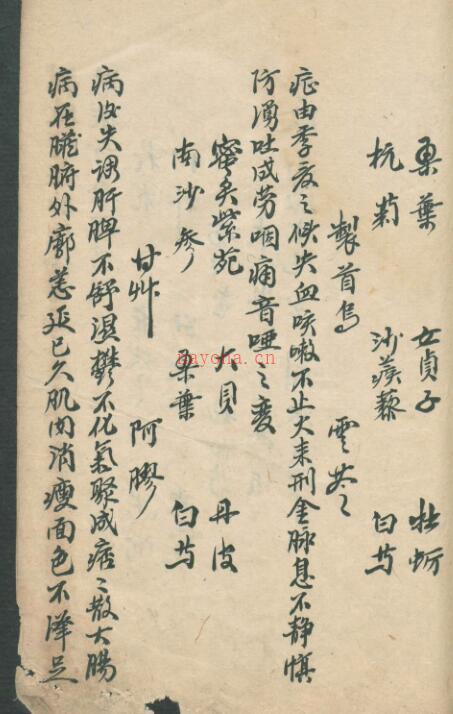 桑葉 女貞子 牡蛎
杭菊 沙蒺藜 白芍
製首烏 雲苓
症由季夏之候失血咳嗽不止火来刑金脉息不静慎
防湧吐成劳咽痛音啞之变
蜜炙紫苑 大貝 丹皮
南沙参 桑葉 白芍
甘艸 阿膠
病後失調肝脾不舒濕鬱不化氣聚成痞痞散大腸
病在臟腑外廓恙延已久肌肉消瘦面色不澤足
nayona.cn